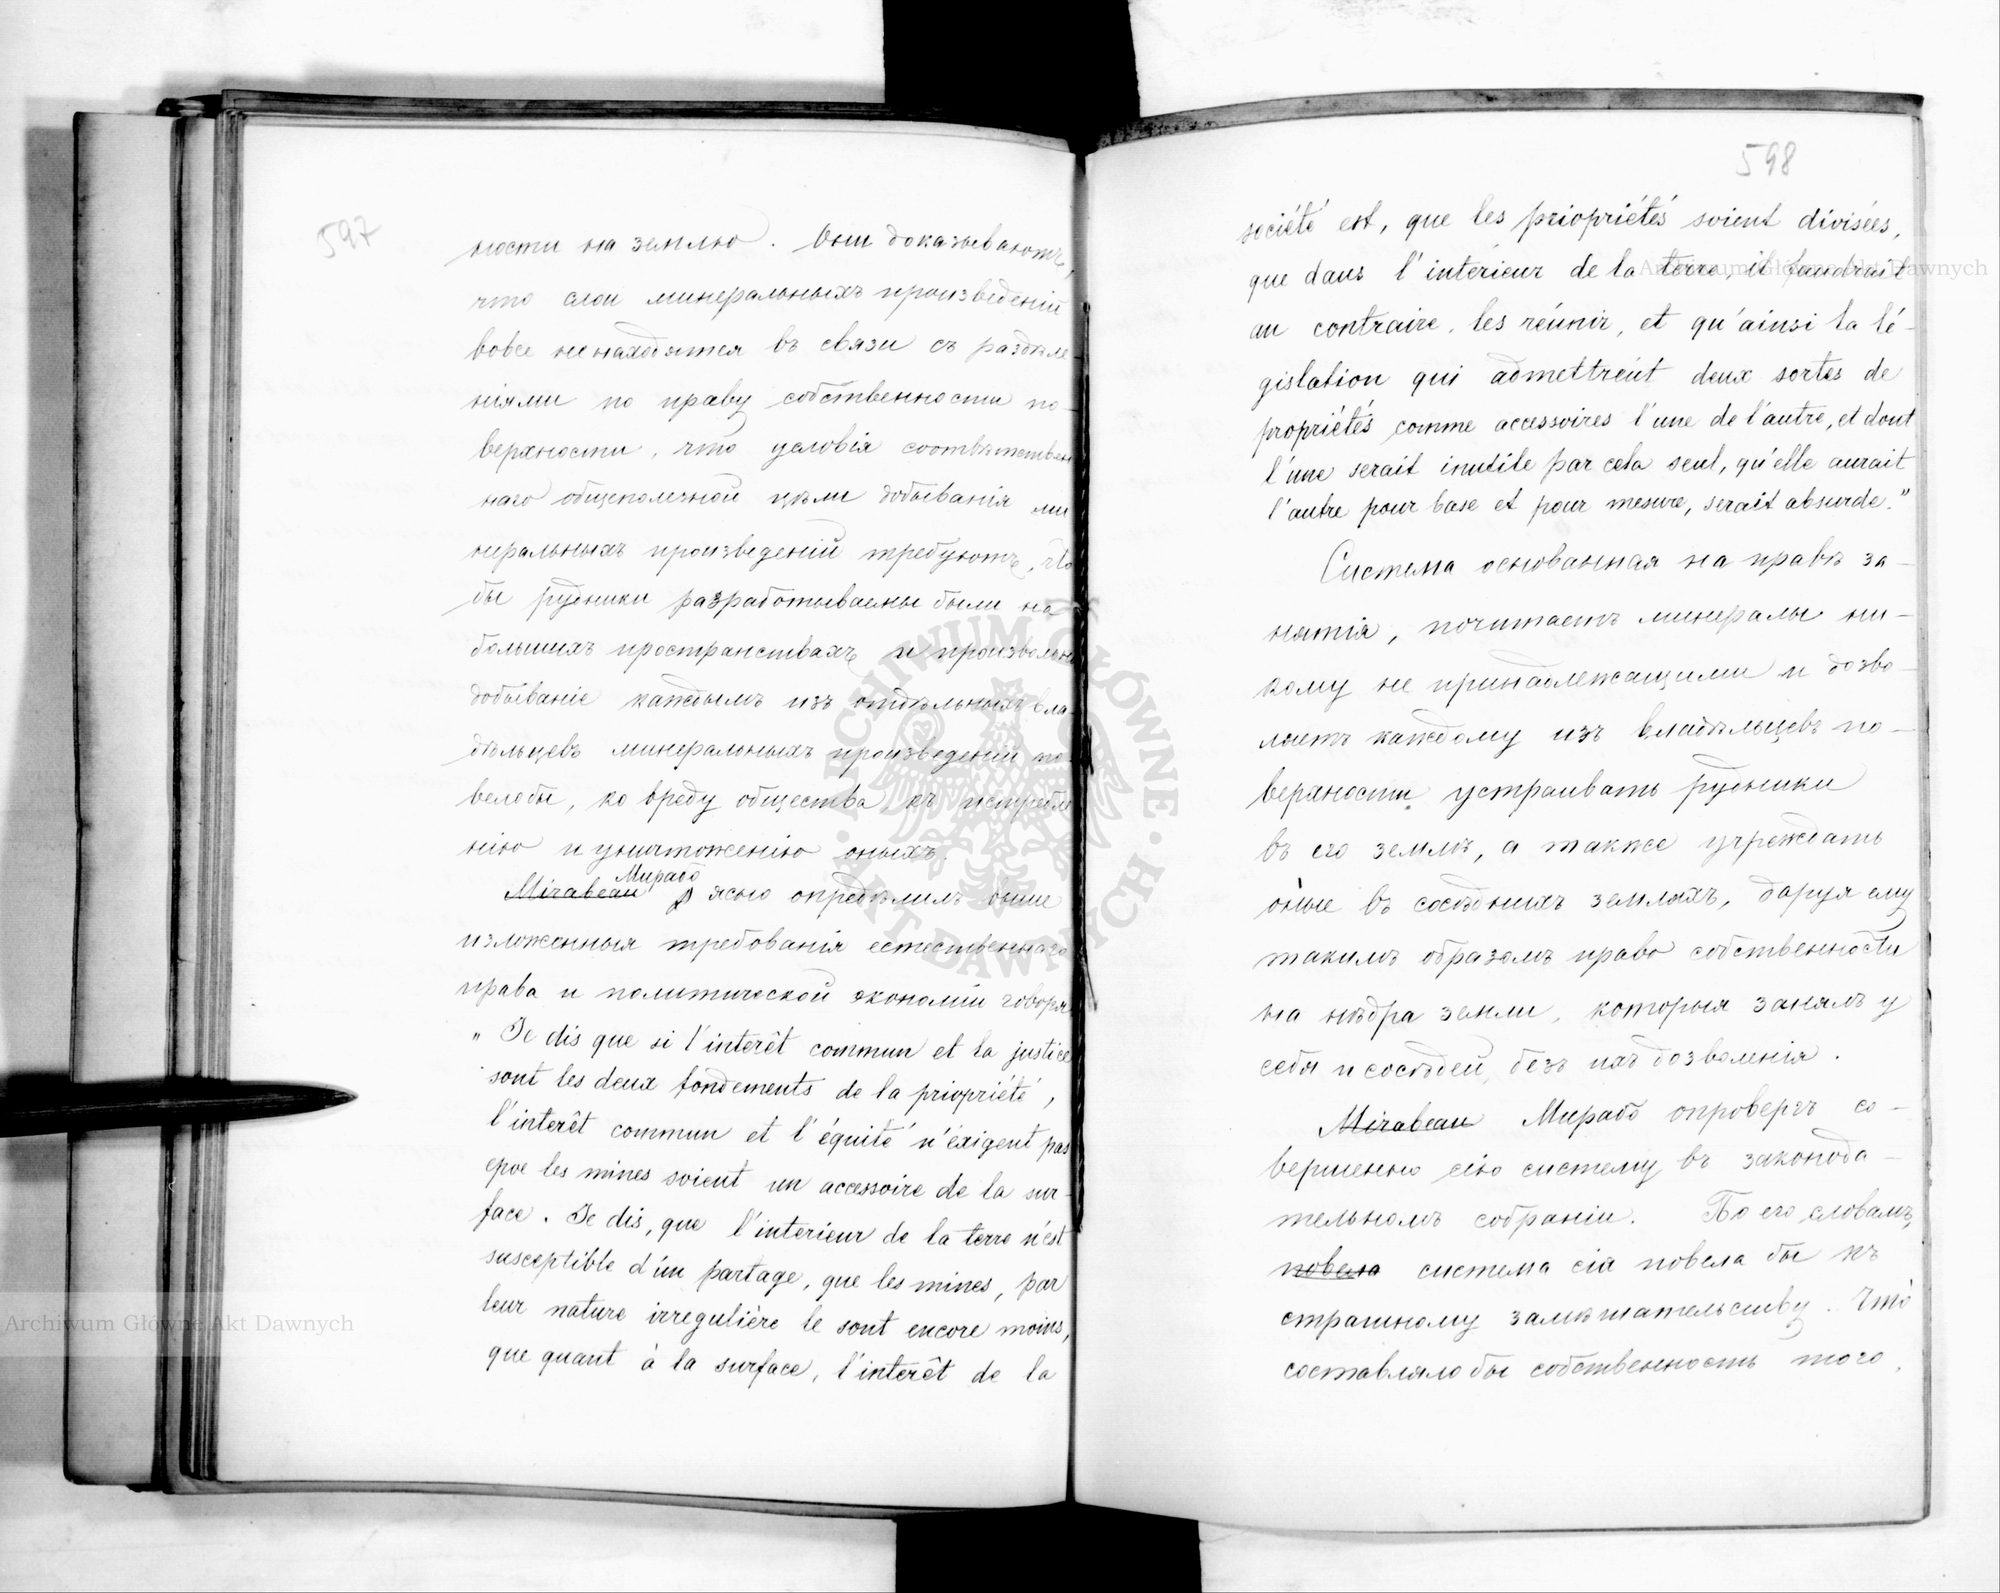 597
ности на землю. Они доказываютъ,
что слои минеральныхъ произведеній
вовсе не находятся въ связи съ раздѣле
ніями по праву собственности по-
верхности, что условія соотвѣтствен
наго общеполезной цѣли добыванія ми
неральныхъ произведеній требуютъ, что
бы рудники разработываемы были на
большихъ пространствахъ и произвольн
добываніе каждымъ изъ отдѣльныхъ вла
дѣльцевъ минеральныхъ произведеній по
вело бы, ко вреду общества, къ истребле
нію и уничтоженію оныхъ.
Mirabeau Мирабо ясно опредѣлилъ выше
изложенныя требованія естественнаго
права и политической экономіи говоря
„Je dis que si l'interêt commun et la justice
sont les deux fondements de la priopriété,
l'interêt commun et l'équité n'éxigent pas
que les mines soient un accessoire de la sur-
face. Je dis, que l'interieur de la terre n'est
susceptible d'un partage, que les mines, par
leur nature irregulière le sont encore moins,
que quant à la surface, l'interêt de la
598
société est, que les priopriétés soient divisées,
que dans l'interieur de la terre, il faudrait
au contraire, les réunir, et qu'ainsi la lé-
gislation qui admettreit deux sortes de
propriétés comme accessoires l'une de l'autre, et dont
l'une serait inutile par cela seul, qu'elle aurait
l'autre pour base et pour mesure, serait absurde."
Система основанная на правѣ за-
нятія, почитаетъ минералы ни-
кому не принадлежащими и дозво-
ляетъ каждому изъ владѣльцевъ по-
верхности устраивать рудники
въ его землѣ, а также учреждать
оные въ сосѣднихъ земляхъ, даруя ему
такимъ образомъ право собственности
на нѣдра земли, которыя занялъ у
себя и сосѣдей, безъ ихъ дозволенія.
Mirabeau Мирабо опровергъ со-
вершенно сію систему въ законода-
тельномъ собраніи. По его словамъ,
повела система сія повела бы къ
страшному замѣшательству. Что
составляло бы собственность того,
Archiwum Główne Akt Dawnych
Archiwum Główne Akt Dawnych
ARCHIWUM GŁÓWNE AKT DAWNYCH